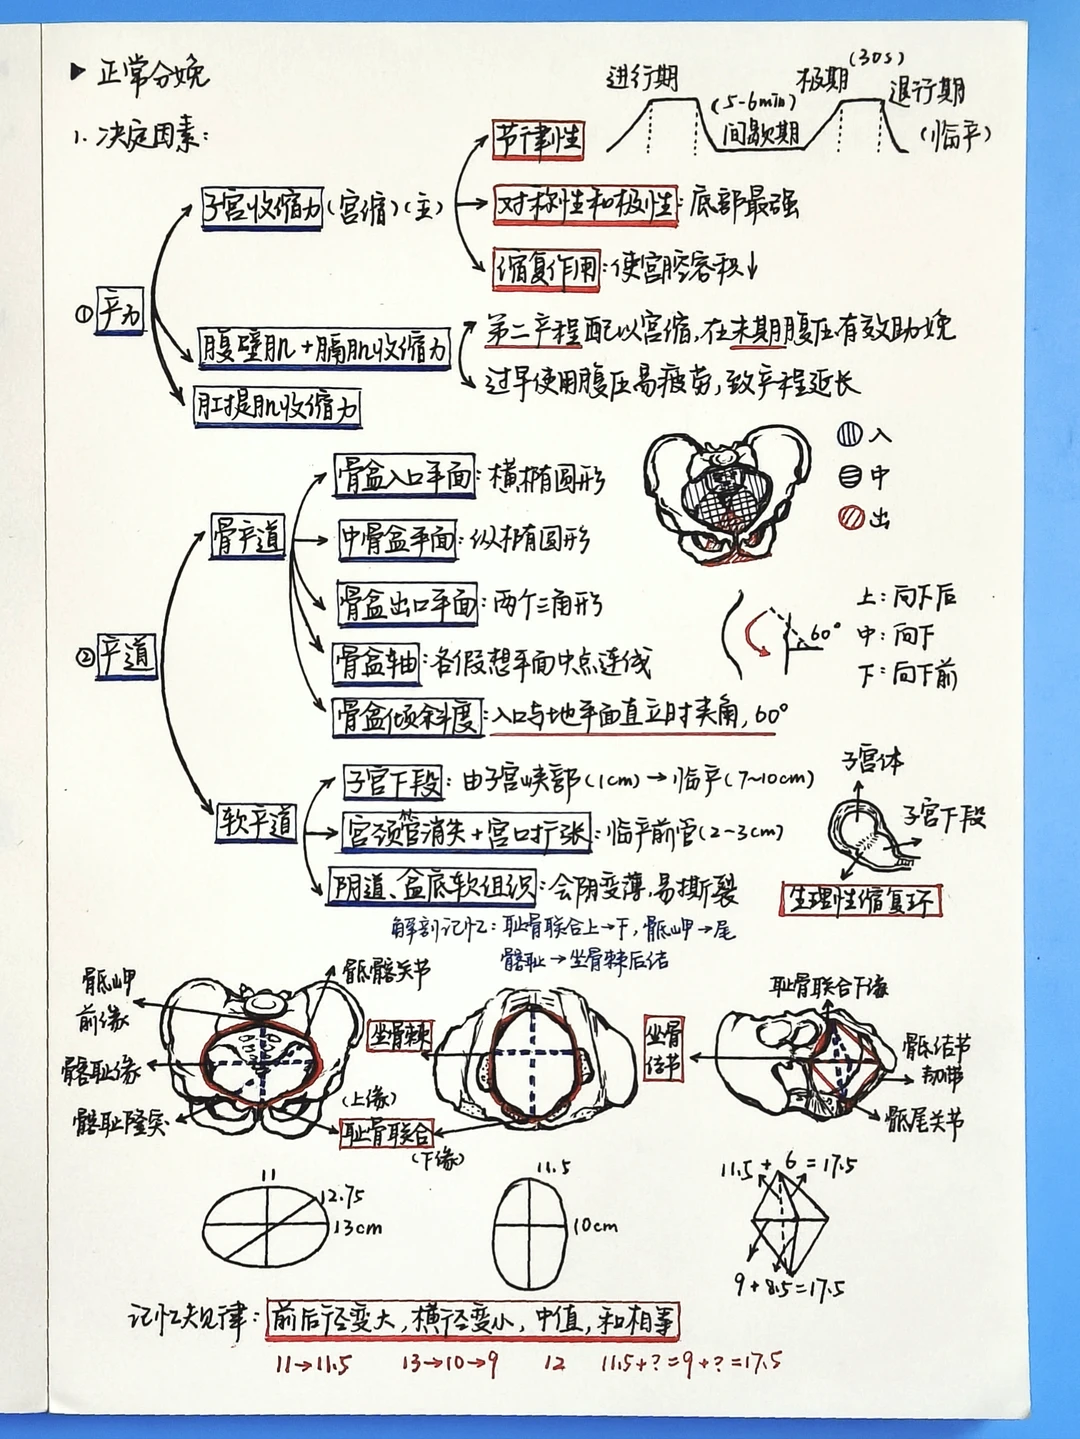 ▶ 正常分娩
1. 决定因素:
进行期
(5-6min)
间歇期
极期(30s)
退行期
(临产)
①产力
子宫收缩力(宫缩)(主)
节律性
对称性和极性:底部最强
缩复作用:使宫腔容积↓
腹壁肌+膈肌收缩力
第二产程配以宫缩,在末期腹压有效助娩
过早使用腹压易疲劳,致产程延长
肛提肌收缩力
②产道
骨产道
骨盆入口平面:横椭圆形
中骨盆平面:纵椭圆形
骨盆出口平面:两个三角形
骨盆轴:各假想平面中点连线
骨盆倾斜度:入口与地平面直立时夹角,60°
入
中
出
60°
上:向下后
中:向下
下:向下前
软产道
子宫下段:由子宫峡部(1cm)→临产(7~10cm)
宫颈管消失+宫口扩张:临产前管(2-3cm)
阴道、盆底软组织:会阴变薄,易撕裂
子宫体
子宫下段
生理性缩复环
解剖记忆:耻骨联合上→下,骶岬→尾
髂耻→坐骨棘后结
骶岬
前缘
骶髂关节
髂耻缘
髂耻隆突
(上缘)
耻骨联合
(下缘)
坐骨棘
坐骨
结节
耻骨联合下缘
骶结节
韧带
骶尾关节
11
12.75
13cm
11.5
10cm
11.5+6=17.5
9+8.5=17.5
记忆规律:前后径变大,横径变小,中值,和相等
11→11.5 13→10→9 12 11.5+?=9+?=17.5